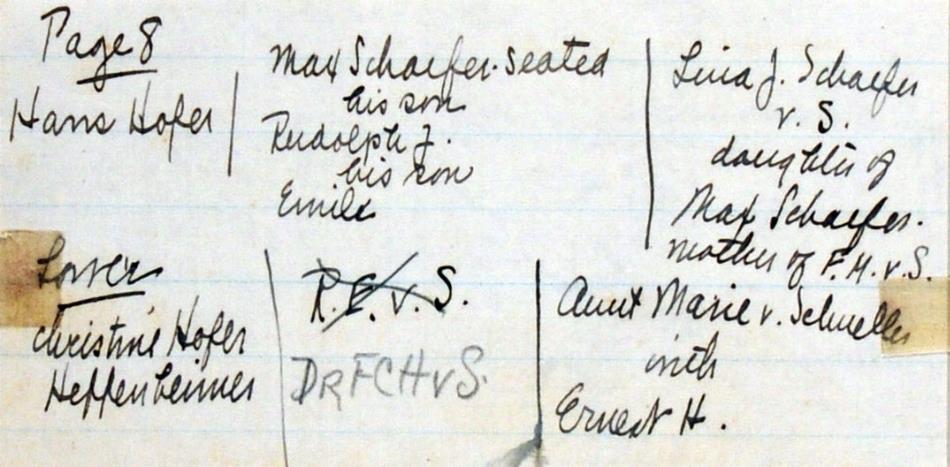 Page 8
Hans Hofer
Max Schaefer. seated
his son
Rudolph J.
his son
Emile
Lina J. Schaefer
v. S.
daughter of
Max Schaefer.
mother of F.H.v.S.
Lower
Christine Hofer
Heppenheimer
R.E.v.S.
DR FCHvS.
Aunt Marie v. Schueller
with
Ernest H.